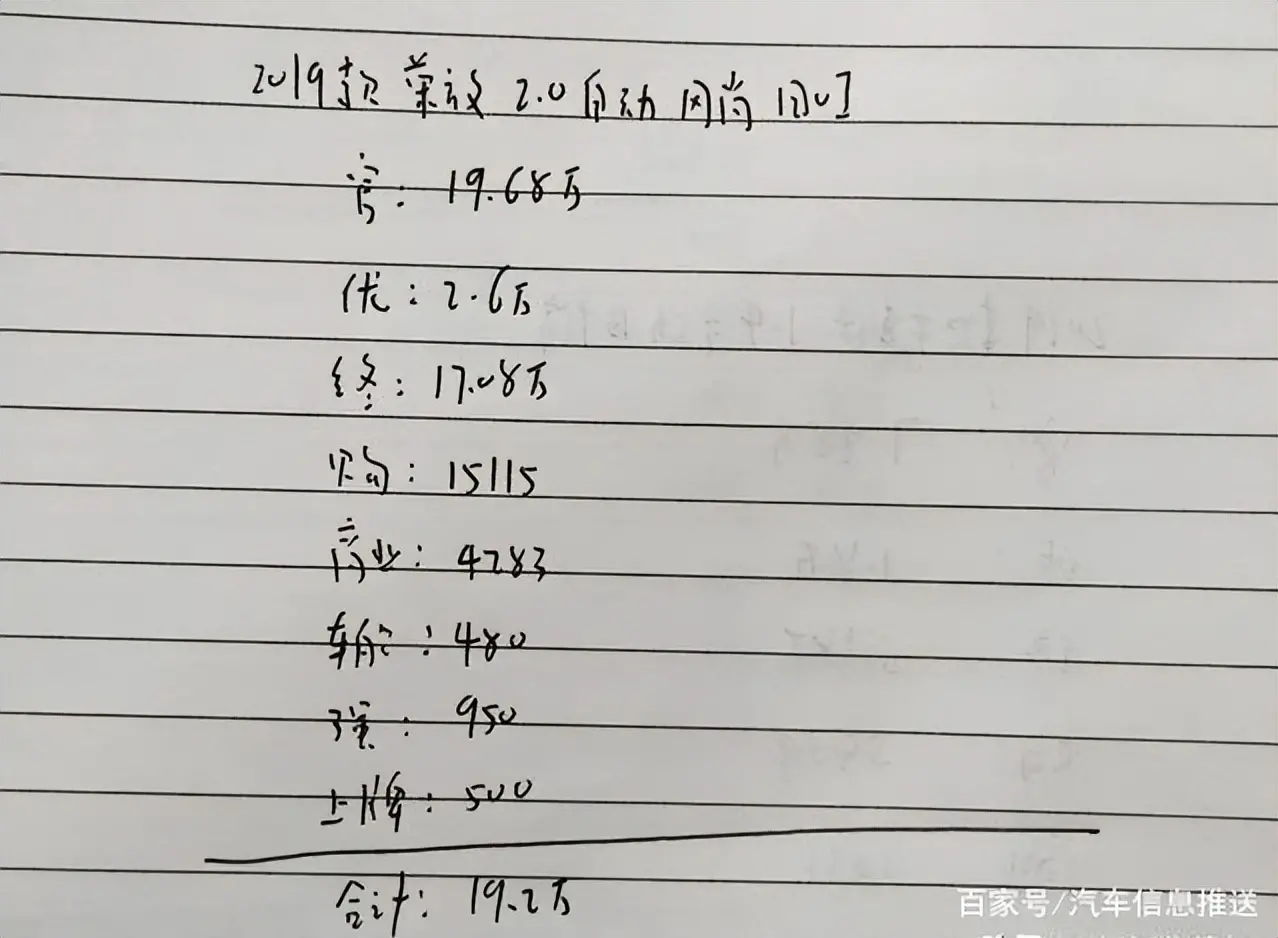 2019款 荣放 2.0自动风尚 [国V]
官: 19.68万
优: 2.6万
终: 17.08万
购: 15115
商业: 4283
车船: 480
强: 950
上牌: 500
合计: 19.2万
百家号/汽车信息推送